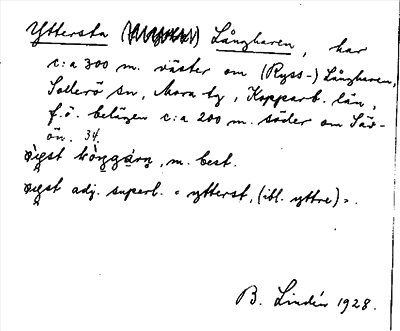 Yttersta Långharen, har
c:a 300 m. väster om (Ryss-) Långharen,
Sollerö sn, Mora tg, Kopparb. län,
f. ö. belägen c:a 200 m. söder om Sär-
ön. 34.
m. best.
adj. superl. = ytterst, (ibl. yttre) =.
B. Lindén 1928.